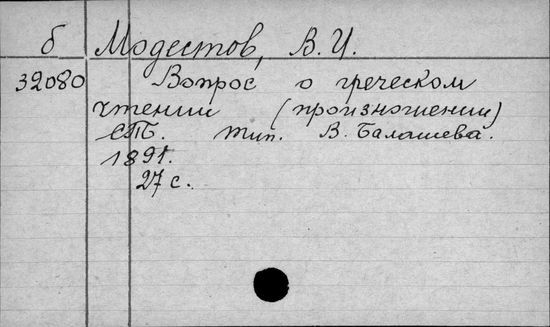 б Модестов, В. И.
32080 Вопрос о греческом
чтении (произношении)
СПБ. тип. В. Балашева.
1891.
27 с.